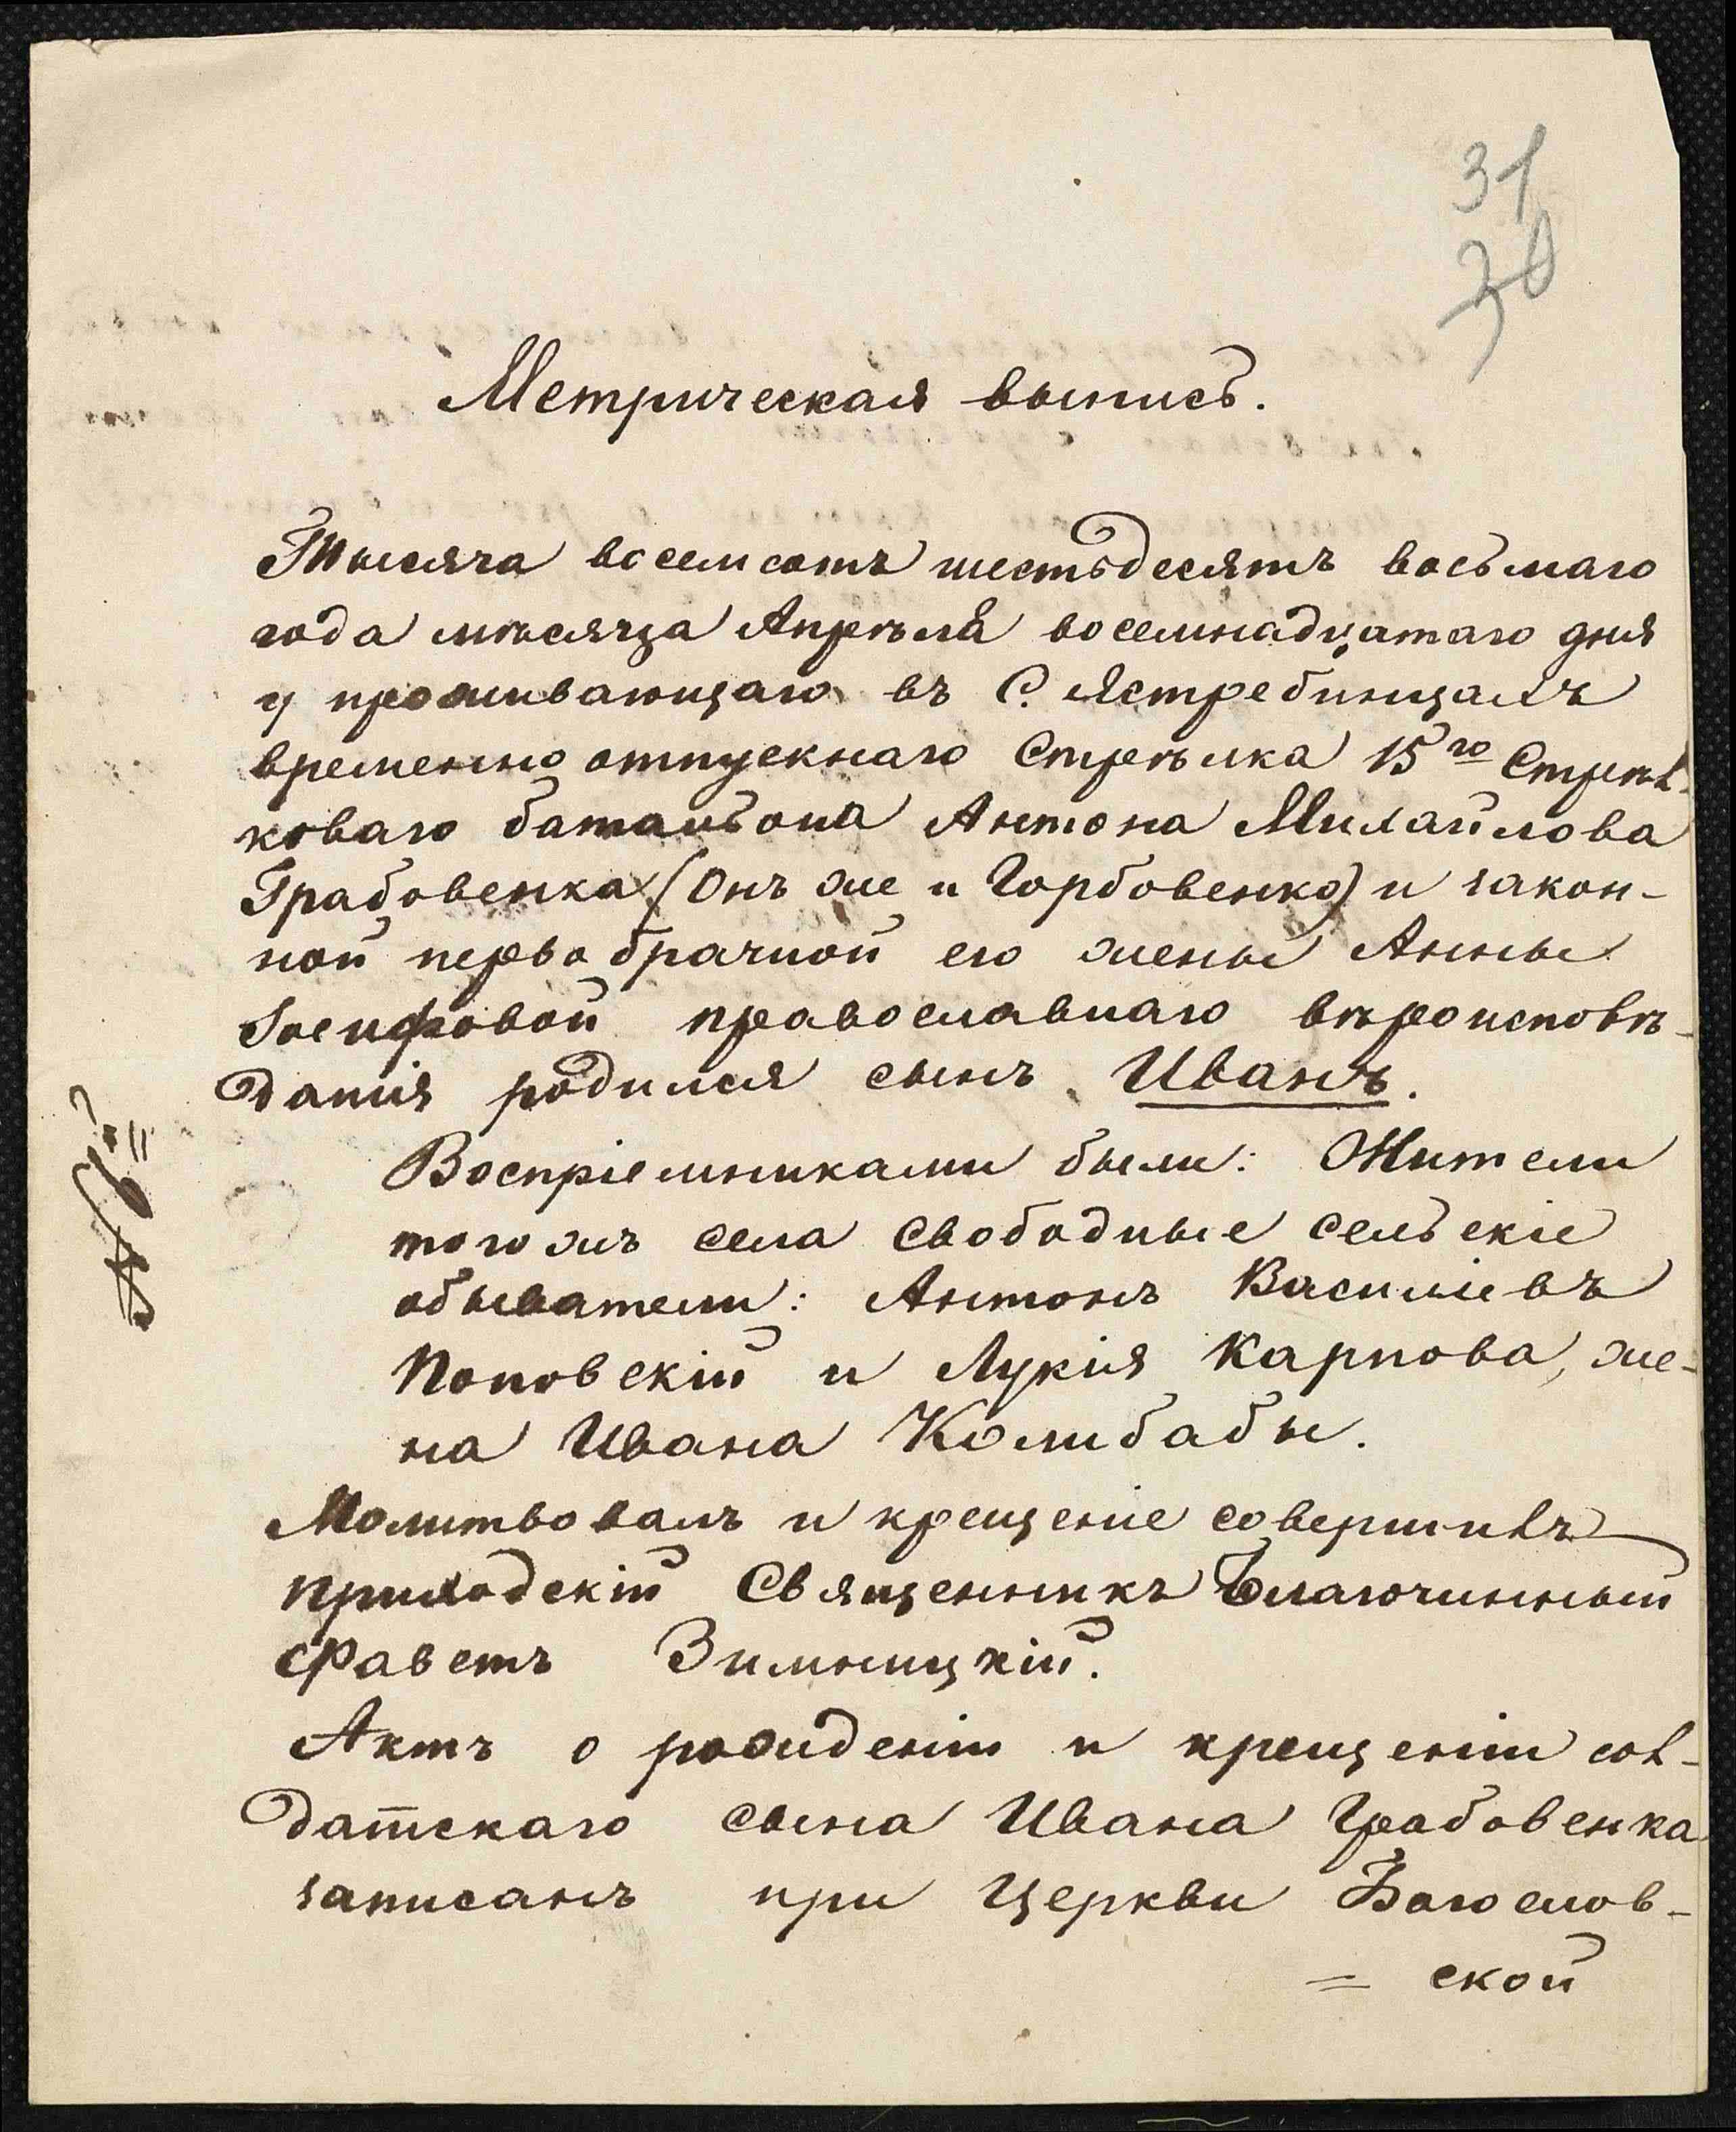 31
30
Метрическая выпись.
Тысяча восемсотъ шестьдесятъ восьмаго
года мѣсяца Апрѣля восемнадцатаго дня
у проживающаго въ С. Ястребинцахъ
временно отпускнаго Стрѣлка 15го Стрѣл-
коваго баталiона Антона Михайлова
Грабовенка (Онъ же и Горбовенко) и закон-
ной первобрачной его жены Анны
Іосифовой православнаго вѣроисповѣ-
данія родился сынъ Иванъ.
Воспріемниками были: Жители
тогожъ села Свободные сельскіе
обыватели: Антонъ Василіевъ
Поповскій и Лукія Карпова, же-
на Ивана Колибабы.
Молитвовалъ и крещеніе совершилъ
приходскій Священникъ Благочинный
Фаветъ Зимницкій.
Актъ о рожденіи и крещеніи сол-
датскаго сына Ивана Грабовенка
записанъ при Церкви Богослов-
= ской